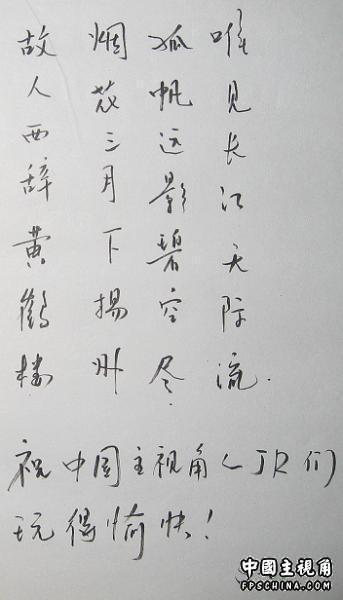 故人西辞黄鹤楼
烟花三月下揚州
孤帆远影碧空尽
唯见长江天际流.
祝中国主视角的JR们
玩得愉快!
中國主視角
FPSCHINA.COM